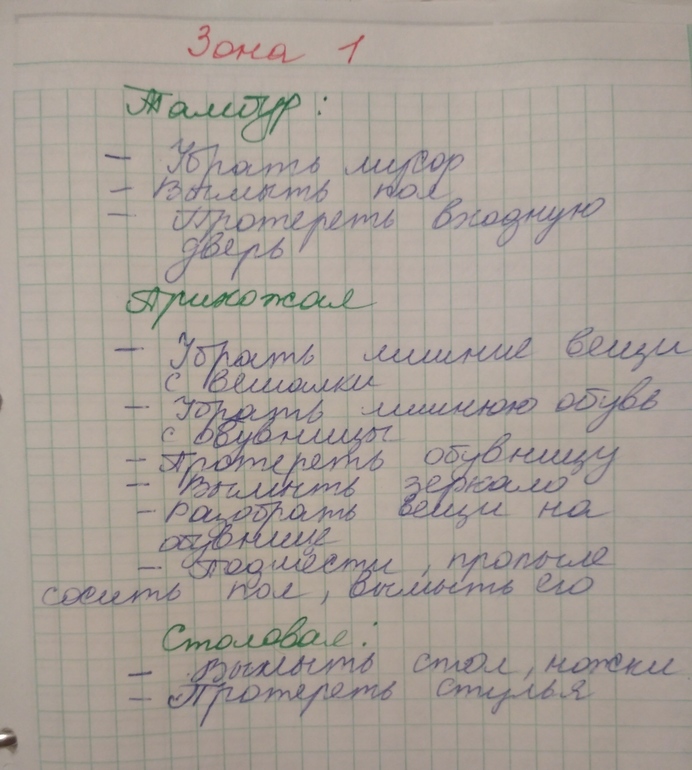 Зона 1
Тамбур:
- Убрать мусор
- Вымыть пол
- Протереть входную
дверь
Прихожая
- Убрать лишние вещи
с вешалки
- Убрать лишнюю обувь
с обувницы
- Протереть обувницу
- Вымыть зеркало
- Разобрать вещи на
обувнице
- Подмести, пропыле
сосить пол, вымыть его
Столовая:
- Вымыть стол, ножки
- Протереть стулья